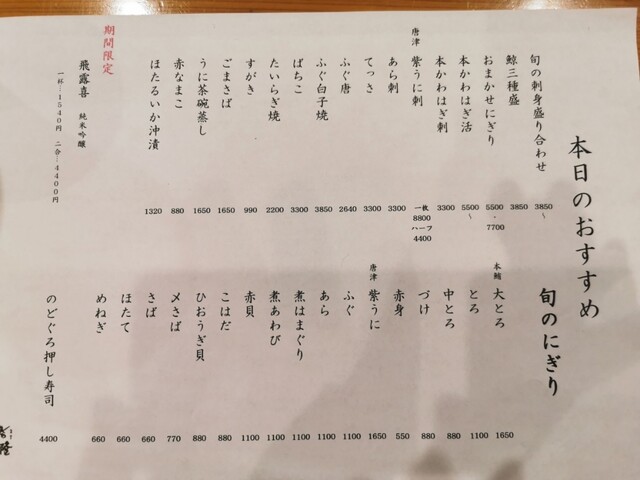 本日のおすすめ
旬の刺身盛り合わせ 3850〜
鯨三種盛 3850
おまかせにぎり 5500・7700
本かわはぎ活 5500〜
本かわはぎ刺 3300
唐津 紫うに刺 一枚 8800 ハーフ 4400
あら刺 3300
てっさ 3300
ふぐ唐 2640
ふぐ白子焼 3850
ばちこ 3300
たいらぎ焼 2200
すがき 990
ごまさば 1650
うに茶碗蒸し 1650
赤なまこ 880
ほたるいか沖漬 1320
期間限定
飛露喜 純米吟醸
一杯―1540円 二合―4400円
旬のにぎり
本鮪 大とろ 1650
とろ 1100
中とろ 880
づけ 880
赤身 550
唐津 紫うに 1650
ふぐ 1100
あら 1100
煮はまぐり 1100
煮あわび 1100
赤貝 1100
こはだ 880
ひおうぎ貝 880
〆さば 770
さば 660
ほたて 660
めねぎ 660
のどぐろ押し寿司 4400